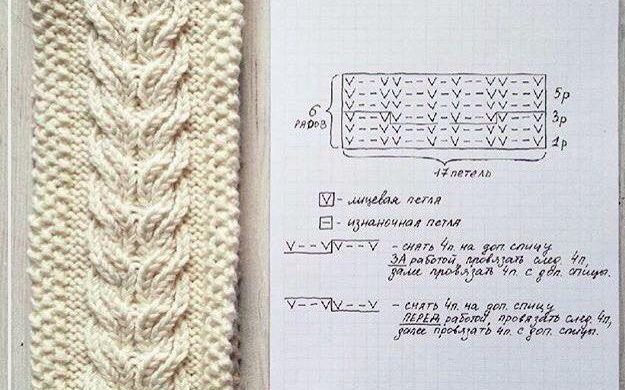 5р
6 рядов 3р
1р
17 петель
V - лицевая петля
− - изнаночная петля
V - - V V - - V - снять 4п. на доп. спицу
ЗА работой, провязать след. 4п,
далее провязать 4п. с доп. спицы.
V - - V V - - V - снять 4п. на доп. спицу
ПЕРЕД работой провязать след. 4п,
далее провязать 4п. с доп. спицы.